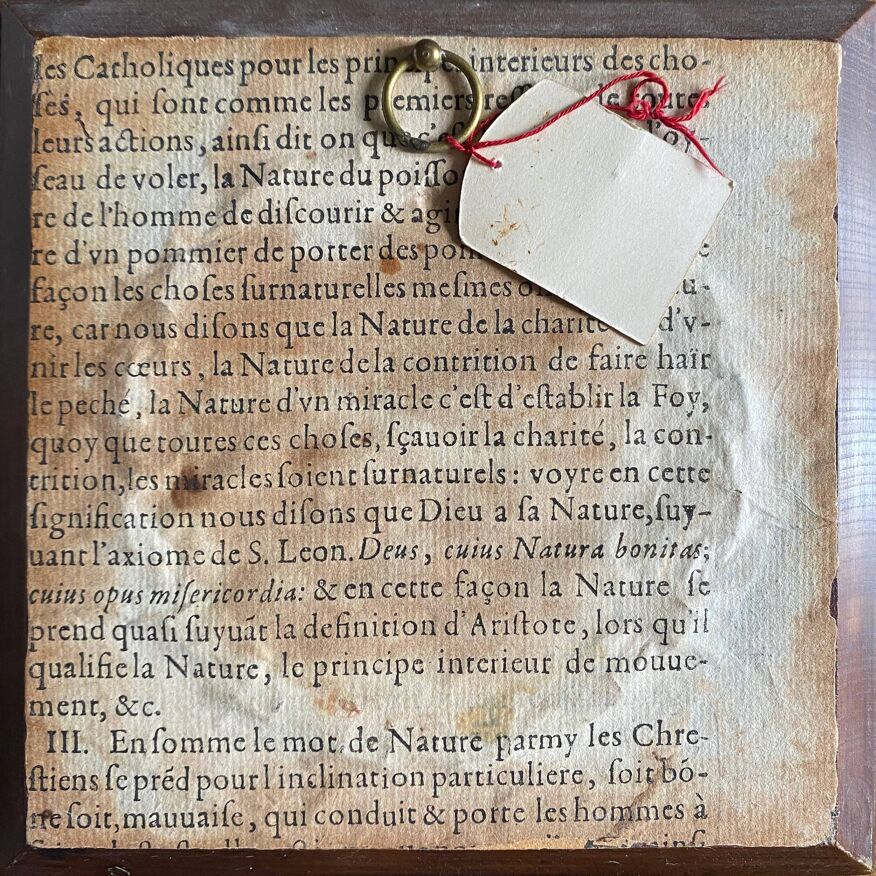 les Catholiques pour les principes interieurs des cho-
ſes, qui ſont comme les premiers de toutes
leurs actions, ainſi dit on que c'eſt l'oy-
ſeau de voler, la Nature du poiſſo
re de l'homme de diſcourir & agi
re d'vn pommier de porter des pom
façon les choſes ſurnaturelles meſmes o
re, car nous diſons que la Nature de la charité d'v-
nir les cœurs, la Nature de la contrition de faire haïr
le peché, la Nature d'vn miracle c'eſt d'eſtablir la Foy,
quoy que toutes ces choſes, ſçauoir la charité, la con-
trition, les miracles ſoient ſurnaturels: voyre en cette
ſignification nous diſons que Dieu a ſa Nature, ſuy-
uant l'axiome de S. Leon. Deus, cuius Natura bonitas;
cuius opus miſericordia: & en cette façon la Nature ſe
prend quaſi ſuyuãt la definition d'Ariſtote, lors qu'il
qualifie la Nature, le principe interieur de mouue-
ment, &c.
III. En ſomme le mot de Nature parmy les Chre-
ſtiens ſe prẽd pour l'inclination particuliere, ſoit bõ-
ne ſoit, mauuaiſe, qui conduit & porte les hommes à